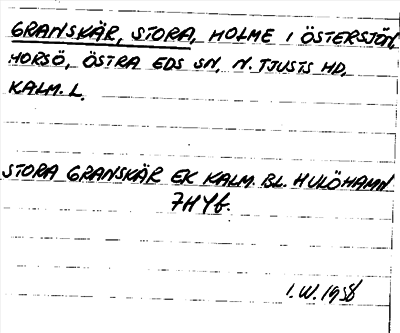 GRANSKÄR, STORA, HOLME I ÖSTERSJÖN,
HORSÖ, ÖSTRA EDS SN, N. TJUSTS HD,
KALM. L.
STORA GRANSKÄR EK KALM. BL. HULÖHAMN
7H4f.
I.W. 1958